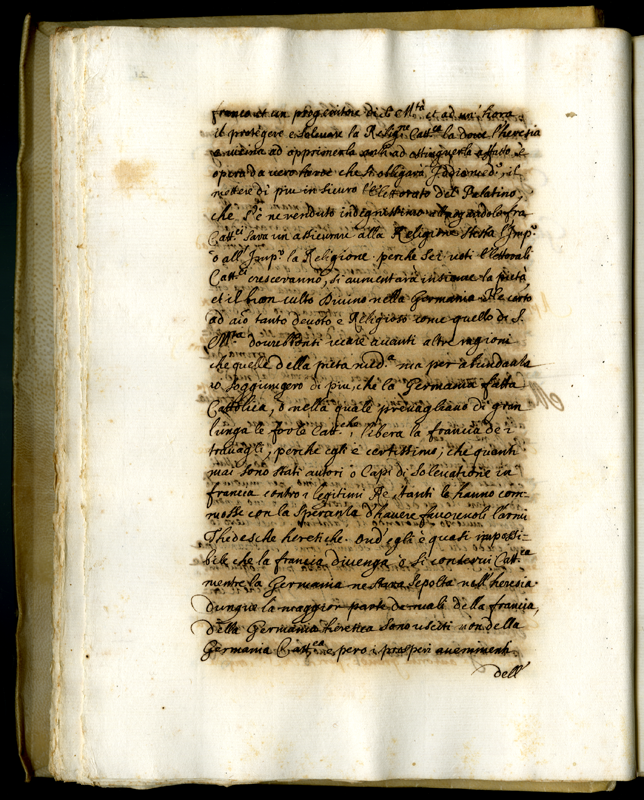 franco et un progenitore di S. M.tà et ad un' hora
il proteggere e solevare la Relig.ne Catt.ca la dove l'heresia
e vicina ad opprimerla anzi ad estinguerla affatto è
opera da vero herede che
mettere di piu in sicuro l'Elettorato del Palatino,
che s'è ne venduto indegnissimo
Catt.ci sara un assicurare alla Religione stessa l'Imp.o
o all' Imp.o la Religione perche se i voti Elettorali
Catt.ci cresceranno, si aumentarà insieme la pietà
et il buon culto Divino nella Germania
ad a.io tanto devoto e Religioso come quello di S.
M.tà dovrebbonsi venire avanti altre ragioni
che quelle della pietà med.a ma per abundanza
io soggiungero di piu, che la Germania fatta
Cattolica, o nella quale prevagliano di gran
lunga le forze Catt.che, libera la francia de i
travagli, perche egli è certissimo, che quanti
mai sono stati autori o Capi di Solevatione in
francia contro i legitimi Re, tanti la hanno com-
mosse con la speranza d'havere favorevoli l'armi
Thedesche heretiche. Ond' egli è quasi impossi-
bile che la francia divenga o si conservi Catt.ca
mentre la Germania ne stara sepolta nell'heresia
dunque la maggior parte de mali della francia,
della Germania heretica sono usciti non della
Germania Catt.ca e pero i prosperi avvenimenti
dell'